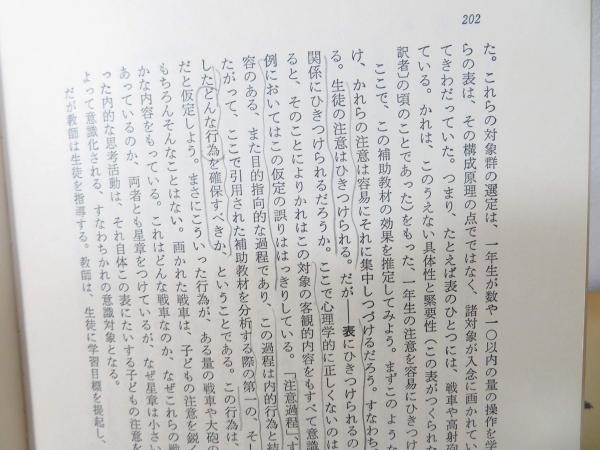 202
た。これらの対象群の選定は、一年生が数や一〇以内の量の操作を学
らの表は、その構成原理の点でではなく、諸対象が入念に画かれてい
てきわだっていた。つまり、たとえば表のひとつには、戦車や高射砲
ている。かれは、このうえない具体性と緊要性（この表がつくられた
訳者〕の頃のことであった）をもった、一年生の注意を容易にひきつけ
ここで、この補助教材の効果を推定してみよう。まずこのような
け、かれらの注意は容易にそれに集中しつづけるだろう。すなわち
る。生徒の注意はひきつけられる。だが――表にひきつけられるの
関係にひきつけられるだろうか。ここで心理学的に正しくないのは
ると、そのことによりかれはこの対象の客観的内容をもすべて意識
例においてはこの仮定の誤りははっきりしている。「注意過程」、す
容のある、また目的指向的な過程であり、この過程は内的行為と結
たがって、ここで引用された補助教材を分析する際の第一の、そし
したどんな行為を確保すべきか、ということである。この行為は、
だと仮定しよう。まさにこういった行為が、ある量の戦車や大砲の
もちろんそんなことはない。画かれた戦車は、子どもの注意を鋭く
かな内容をもっている。これはどんな戦車なのか、なぜこれらの戦
あっているのか、両者とも星章をつけているが、なぜ星章は小さい
った内的な思考活動は、それ自体この表にたいする子どもの注意を
よって意識化される、すなわちかれの意識対象となる。
だが教師は生徒を指導する。教師は、生徒に学習目標を提起し、